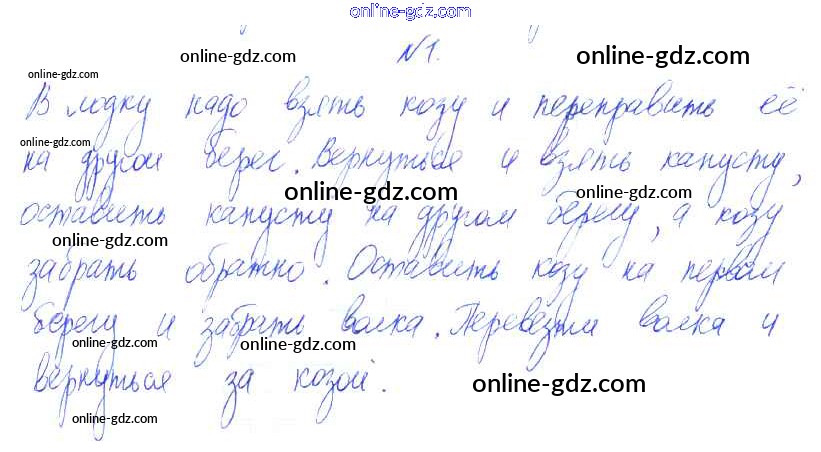 online-gdz.com
online-gdz.com
№1.
online-gdz.com
online-gdz.com
В лодку надо взять козу и переправить её
online-gdz.com
на другой берег. Вернуться и взять капусту,
online-gdz.com
online-gdz.com
оставить капусту на другом берегу, а козу
online-gdz.com
забрать обратно. Оставить козу на первом
берегу и забрать волка. Перевезти волка и
online-gdz.com
online-gdz.com
вернуться за козой.
online-gdz.com
online-gdz.com